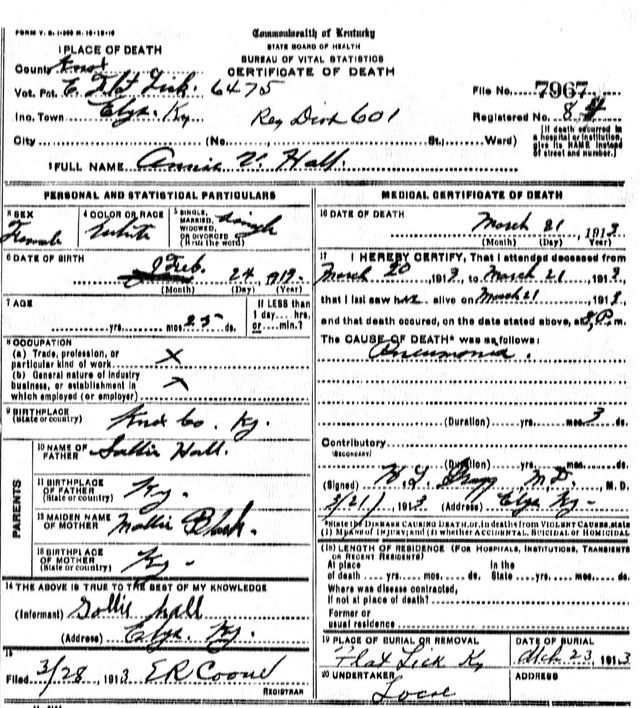 FORM V. S. 1-300 M. 10-10-10
Commonwealth of Kentucky
STATE BOARD OF HEALTH
BUREAU OF VITAL STATISTICS
CERTIFICATE OF DEATH
1 PLACE OF DEATH
County Knox
Vot. Pct. E. Flat Lick. 6475
File No. 7967
Inc. Town Elys. Ky Reg Dist 601
Registered No. 84
[If death occurred in a hospital or institution, give its NAME instead of street and number.]
City (No. St.; Ward)
2 FULL NAME Annie V. Hall.
PERSONAL AND STATISTICAL PARTICULARS
3 SEX Female
4 COLOR OR RACE White
5 SINGLE, MARRIED, WIDOWED, OR DIVORCED (Write the word) Single
6 DATE OF BIRTH Feb. 24, 1913
(Month) (Day) (Year)
7 AGE
yrs. mos. 25 ds.
If LESS than 1 day hrs. or min.?
8 OCCUPATION
(a) Trade, profession, or particular kind of work X
(b) General nature of industry business, or establishment in which employed (or employer) X
9 BIRTHPLACE (State or country) Knox Co. Ky.
PARENTS
10 NAME OF FATHER Hall.
11 BIRTHPLACE OF FATHER (State or country) Ky.
12 MAIDEN NAME OF MOTHER Mollie
13 BIRTHPLACE OF MOTHER (State or country) Ky.
14 THE ABOVE IS TRUE TO THE BEST OF MY KNOWLEDGE
(Informant) Hall
(Address) Elys. Ky.
15
Filed 3/28, 1913 E R
REGISTRAR
MEDICAL CERTIFICATE OF DEATH
16 DATE OF DEATH
March 21, 1913
(Month) (Day) (Year)
17 I HEREBY CERTIFY, That I attended deceased from
March 20, 1913, to March 21, 1913,
that I last saw her alive on March 21, 1913,
and that death occured, on the date stated above, at 8 P. m.
The CAUSE OF DEATH* was as follows:
Pneumonia.
(Duration) yrs. mos. 3 ds.
Contributory
(SECONDARY)
(Duration) yrs. mos. ds.
(Signed) M D., M. D.
3/21, 1913 (Address) Elys Ky-
*State the DISEASE CAUSING DEATH, or, in deaths from VIOLENT CAUSES, state (1) MEANS of INJURY; and (2) whether ACCIDENTAL, SUICIDAL or HOMICIDAL
18 LENGTH OF RESIDENCE (FOR HOSPITALS, INSTITUTIONS, TRANSIENTS OR RECENT RESIDENTS)
At place of death yrs. mos. ds. In the State yrs. mos. ds.
Where was disease contracted, if not at place of death?
Former or usual residence
19 PLACE OF BURIAL OR REMOVAL
Flat Lick Ky
DATE OF BURIAL
Mch. 23, 1913
20 UNDERTAKER
Local
ADDRESS